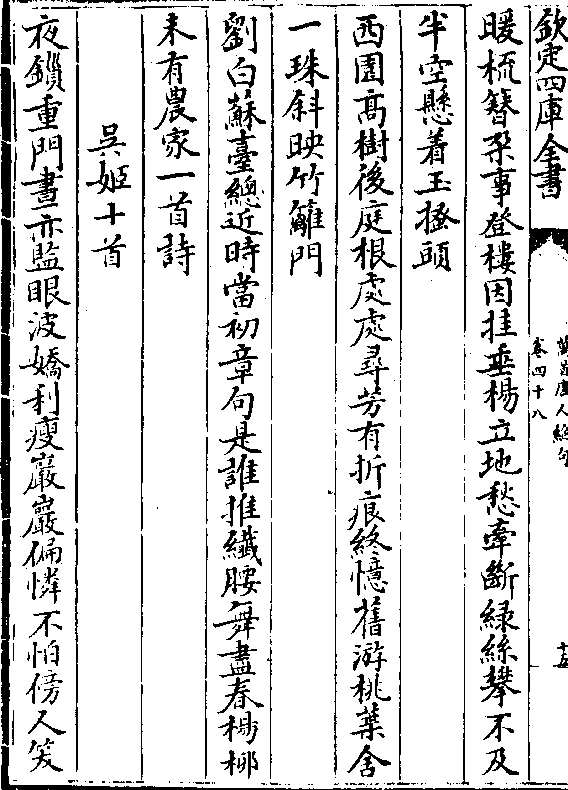 欽定四庫全書
萬首唐人絕句
卷四十八
十五
暖梳簪朶事登樓因挂垂楊立地愁牽斷緑絲攀不及
半空懸着玉搔頭
西園髙樹後庭根處處尋芳有折痕終憶舊游桃葉舍
一珠斜映竹籬門
劉白蘇臺總近時當初章句是誰推纖腰舞盡春楊柳
未有農家一首詩
吳姬十首
夜鎖重門晝亦監眼波嬌利瘦巖巖偏憐不怕傍人笑